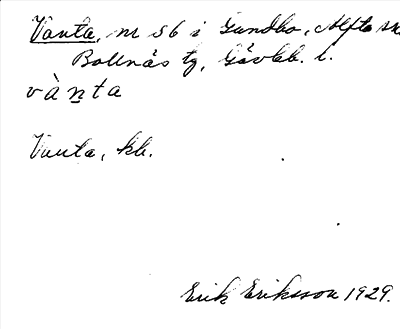 Vanta, nr 56 i Gundbo, Alfta sn
Bollnäs tg, Gävleb. l.
vàn̲ta
Vanta, kb.
Erik Eriksson 1929.